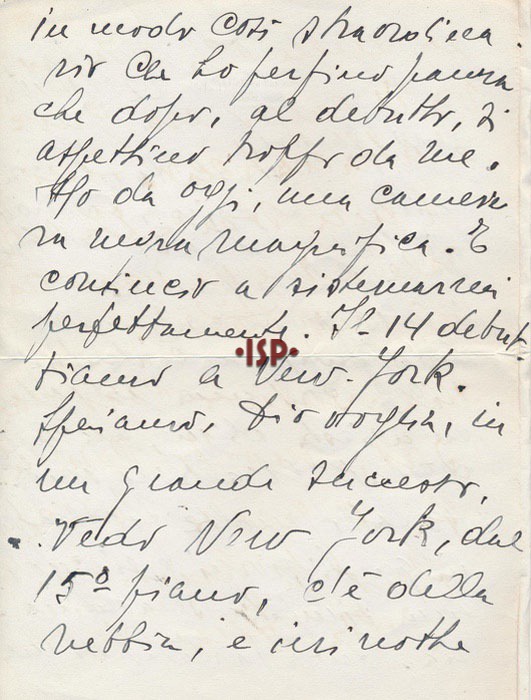 in modo così straordina
rio che ho perfino paura
che dopo, al debutto, si
aspettino troppo da me.
Ho da oggi, una camera
nuova magnifica. E
comincio a sistemarmi
perfettamente. Il 14 debut
·ISP·
tiamo a New-York.
Speriamo, Dio voglia, in
un grande successo.
Vedo New York, dal
15º piano, c'è della
nebbia, e ieri notte